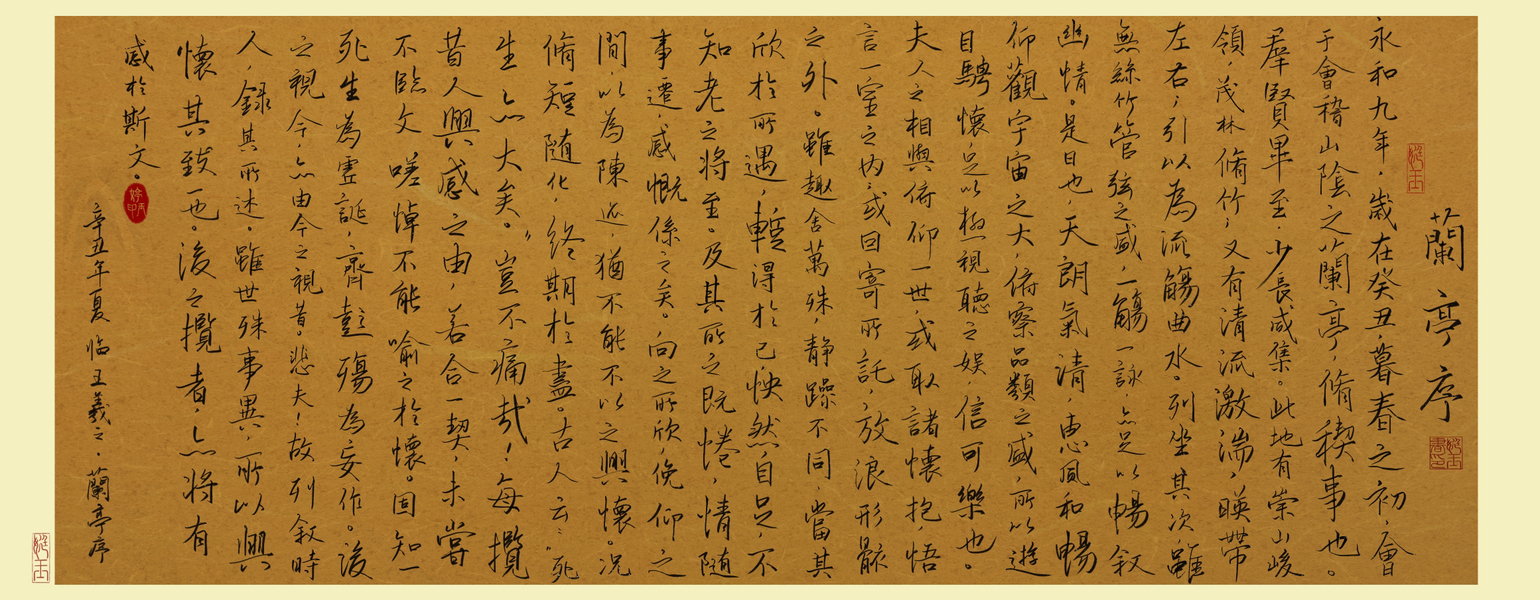 蘭亭序
永和九年，歲在癸丑，暮春之初，會
于會稽山陰之蘭亭，脩稧事也。
羣賢畢至，少長咸集。此地有崇山峻
領，茂林脩竹，又有清流激湍，暎帶
左右，引以為流觴曲水。列坐其次，雖
無絲竹管弦之盛，一觴一詠，亦足以暢叙
幽情。是日也，天朗氣清，惠風和暢
仰觀宇宙之大，俯察品類之盛，所以遊
目騁懷，足以極視聽之娛，信可樂也。
夫人之相與俯仰一世，或取諸懷抱，悟
言一室之內，或因寄所託，放浪形骸
之外。雖趣舍萬殊，靜躁不同，當其
欣於所遇，暫得於己，怏然自足，不
知老之將至。及其所之既惓，情隨
事遷，感慨係之矣。向之所欣，俛仰之
間，以為陳迹，猶不能不以之興懷。況
脩短隨化，終期於盡。古人云：“死
生亦大矣。”豈不痛哉！每攬
昔人興感之由，若合一契，未嘗
不臨文嗟悼，不能喻之於懷。固知一
死生為虛誕，齊彭殤為妄作。後
之視今，亦由今之視昔。悲夫！故列叙時
人，錄其所述。雖世殊事異，所以興
懷，其致一也。後之攬者，亦將有
感於斯文。
辛丑年夏临王羲之·蘭亭序